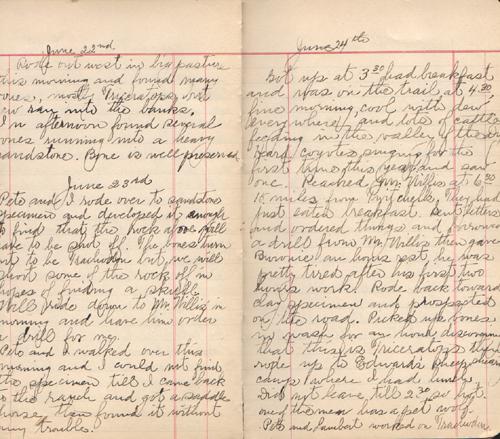 June 22nd.
Rode out west in big pasture
this morning and found many
bones, mostly Triceratops but
few ran into the banks.
In afternoon found several
bones running into a heavy
sandstone. Bone is well preserved
June 23rd
Pete and I rode over to sandstone
specimen and developed it enough
to find that the rock above will
have to be shot off. The bones turn
out to be Trachodon but we will
shoot some of the rock off in
hopes of finding a skull.
Will ride down to Mr. Willis's in
morning and have him order
a drill for me.
Pete and I walked over this
morning and I could not find
the specimen till I came back
to the ranch and got a saddle
horse, then found it without
any trouble.
June 24th
Got up at 3 30 had breakfast
and was on the trail at 4 30
fine morning cool with dew
everywhere, and lots of cattle
feeding in the valley of these
Hard coyotes singing for the
first time this year and saw
one. Reached Willis at 6 30
15 miles from They had
just eaten breakfast. Sent letters
and ordered things and borrowed
a drill from Mr. Willis then gave
an hours rest, he was
pretty tired after his first two
hours work. Rode back toward
clay specimen and prospected
on the road. Picked up bones
in wash for an hour
that this is Triceratops then
rode up to Edwards sheep shearing
camp where I had lunch.
Did not leave till 2 30 so hot.
one of the men has a pet wolf.
Pete and Lambert worked on Trachodon